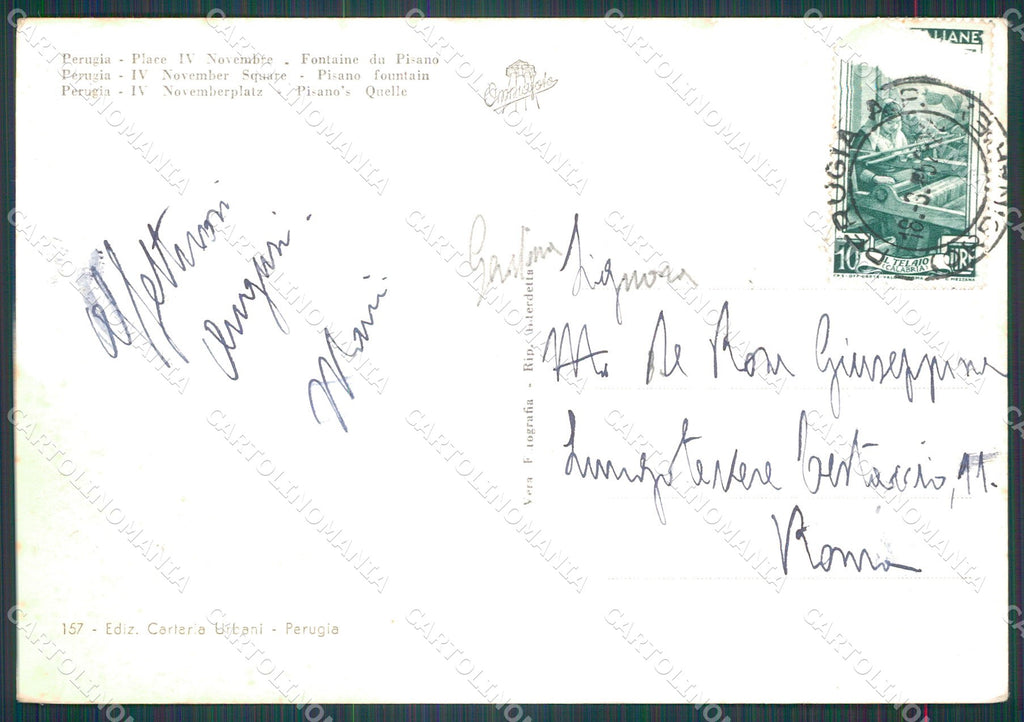 Perugia - Place IV Novembre - Fontaine du Pisano
Perugia - IV November Square - Pisano fountain
Perugia - IV Novemberplatz - Pisano's Quelle
ITALIANE
PERUGIA
10
IL TELAIO
(CALABRIA)
Affettuosi
auguri
Vera Fotografia - Rip. Interdetta
Signora
De Rose Giuseppina
Lungotevere Testaccio, 11.
Roma
157 - Ediz. Carteria Urbani - Perugia
CARTOLINOMANIA